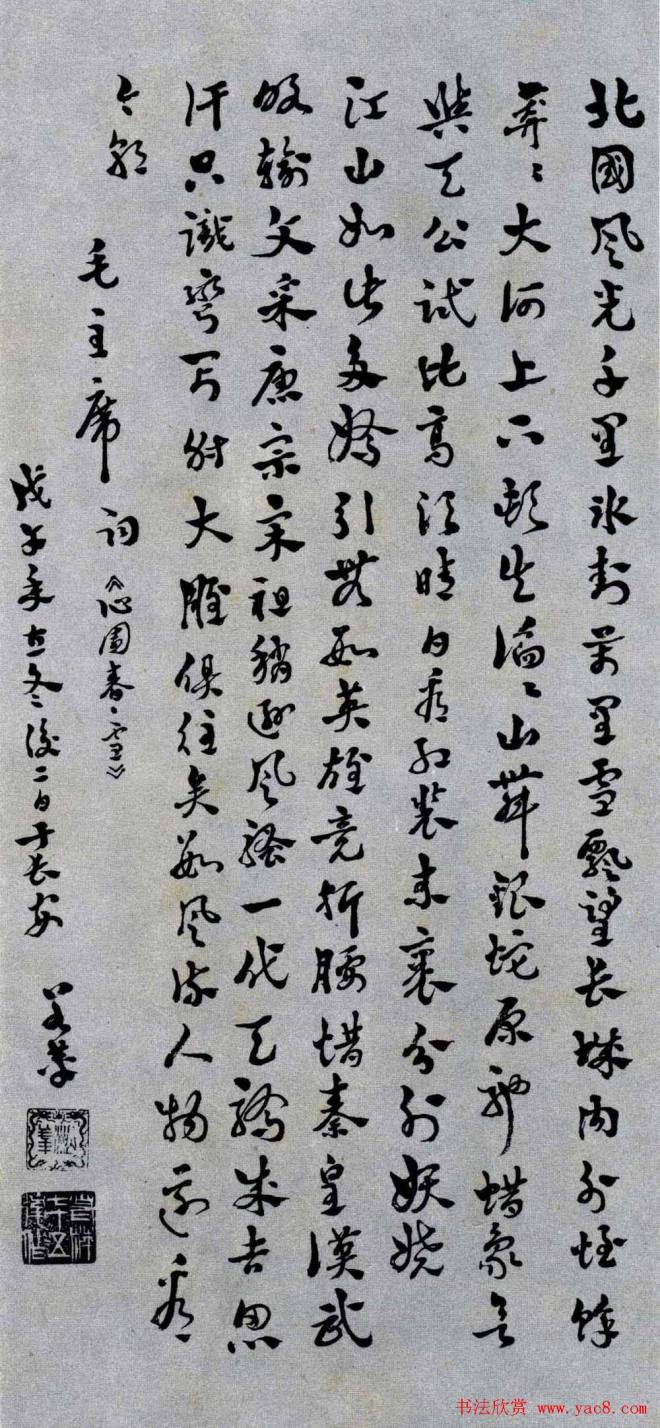 北國風光千里冰封萬里雪飄望長城內外惟餘
莽々大河上下頓失滔々山舞銀蛇原馳蜡象
與天公試比高須晴日看紅裝素裹分外妖嬈
江山如此多嬌引無數英雄競折腰惜秦皇漢武
略輸文采唐宗宋祖稍遜風騷一代天驕成吉思
汗只識彎弓射大雕俱往矣數風流人物還看
今朝
毛主席詞《沁園春·雪》
戊午年立冬後二日于長安
书法欣赏 www.yac8.com